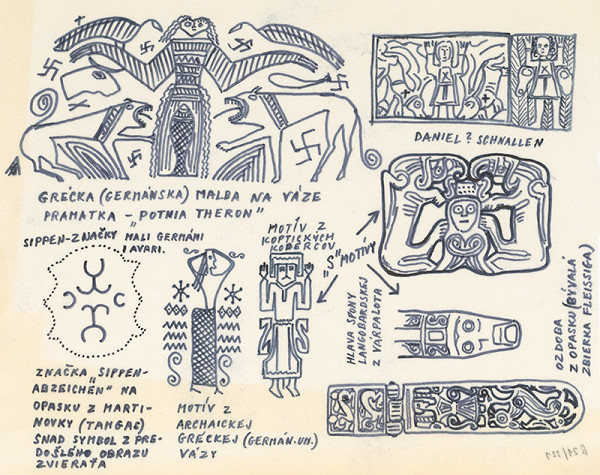 DANIEL? SCHNALLEN
GRÉCKA (GERMÁNSKA) MALBA NA VÁZE
PRAMATKA - "POTNIA THERON"
SIPPEN-ZNAČKY MALI GERMÁNI
I AVARI.
MOTÍV Z
KOPTICKÝCH
KOBERCOV
"S" MOTÍVY
HLAVA SPONY
LANGOBARDSKEJ
Z VÁRPALOTA
OZDOBA
Z OPASKU (BÝVALA
ZBIERKA FLEISSIGA)
ZNAČKA "SIPPEN-
ABZEICHEN" NA
OPASKU Z MARTI-
NOVKY (TAMGAS)
SNAD SYMBOL Z PRE-
DOŠLÉHO OBRAZU
ZVIERAŤA
MOTÍV Z
ARCHAICKEJ
GRÉCKEJ (GERMÁN. UM.)
VÁZY